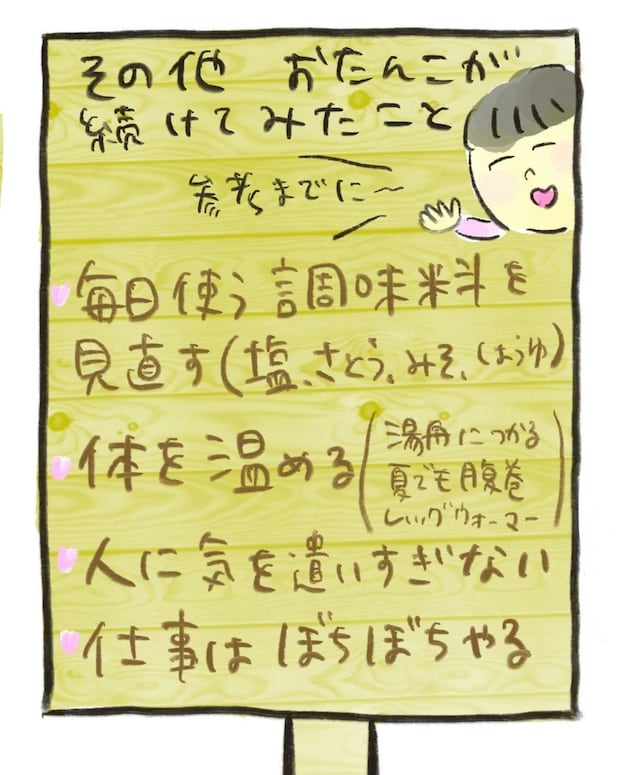 その他 おたんこが
続けてみたこと
参考までに〜
毎日使う調味料を
見直す(塩、さとう、みそ、しょうゆ)
体を温める(湯舟につかる
夏でも腹巻
レッグウォーマー)
人に気を遣いすぎない
仕事はぼちぼちやる